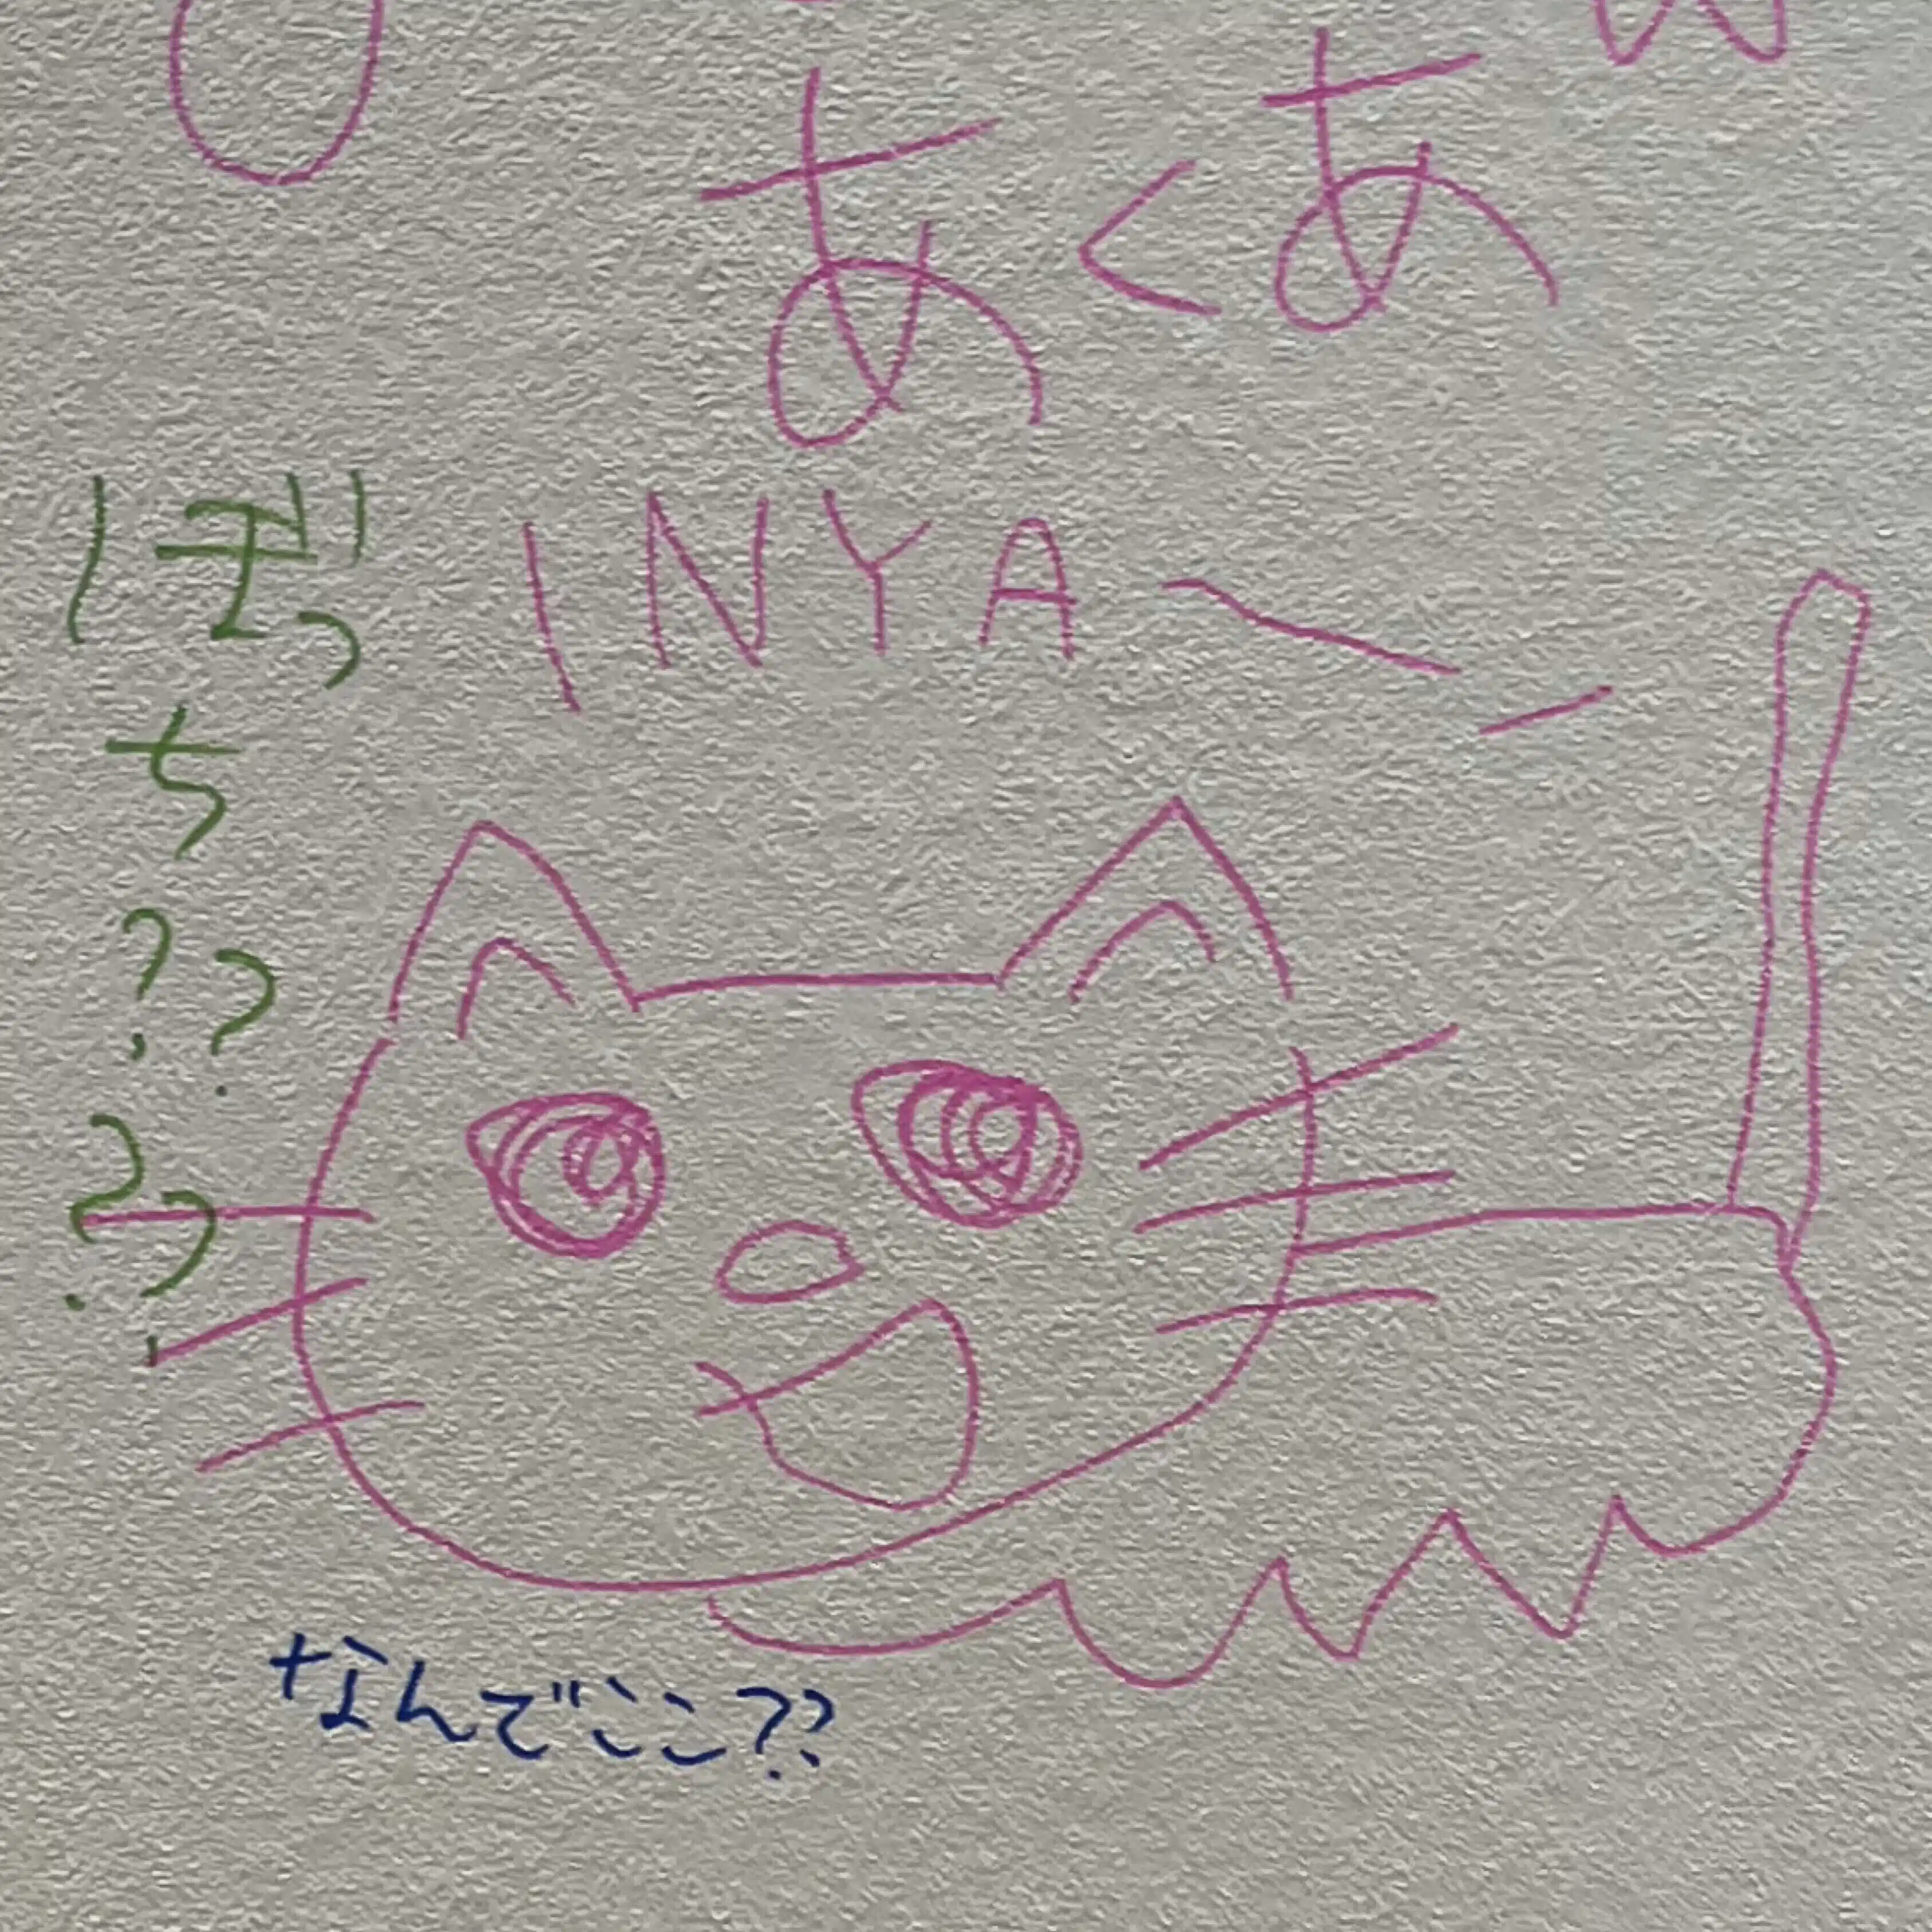 あくあ
INYA〜
ぼっ
ち
??
??
なんでここ??